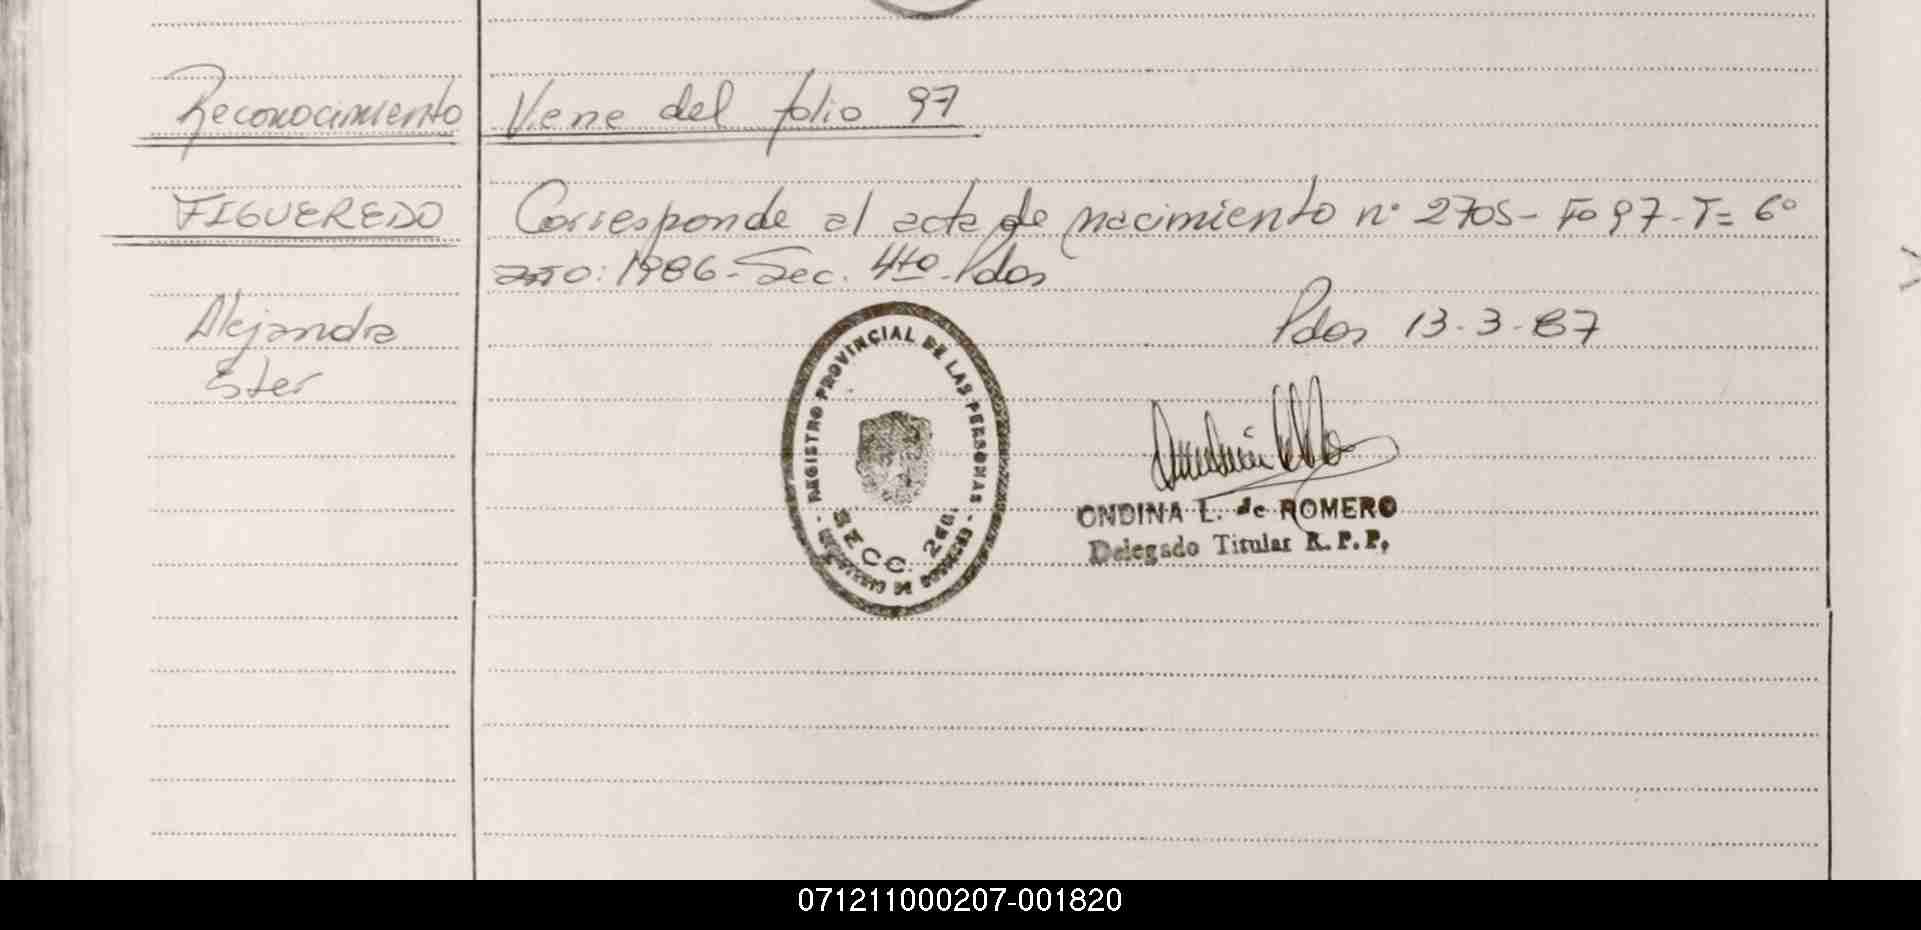 Reconocimiento Viene del folio 97
FIGUEREDO Corresponde al acta de nacimiento nº 2705- Fº 97- T= 6º
año: 1986- Sec. 4to Pdas
Alejandra
Ester
Pdas 13-3-87
REGISTRO PROVINCIAL DE LAS PERSONAS
SECC. 2
ONDINA L. de ROMERO
Delegado Titular R.P.P.
071211000207-001820